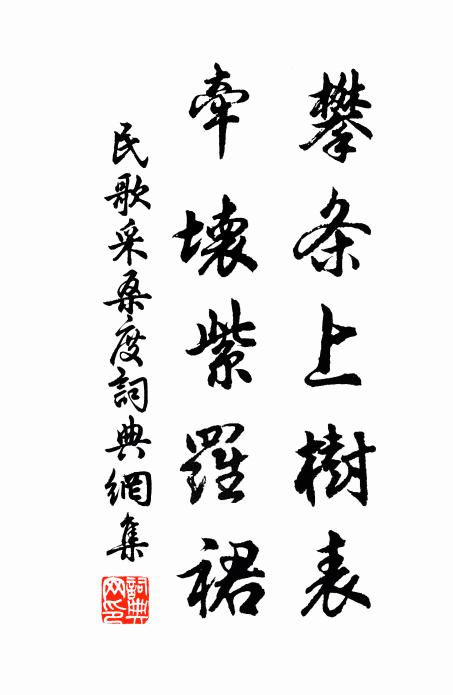 攀条上樹表
牽壞紫羅裙
民歌采桑度詞典網集
詞典網印